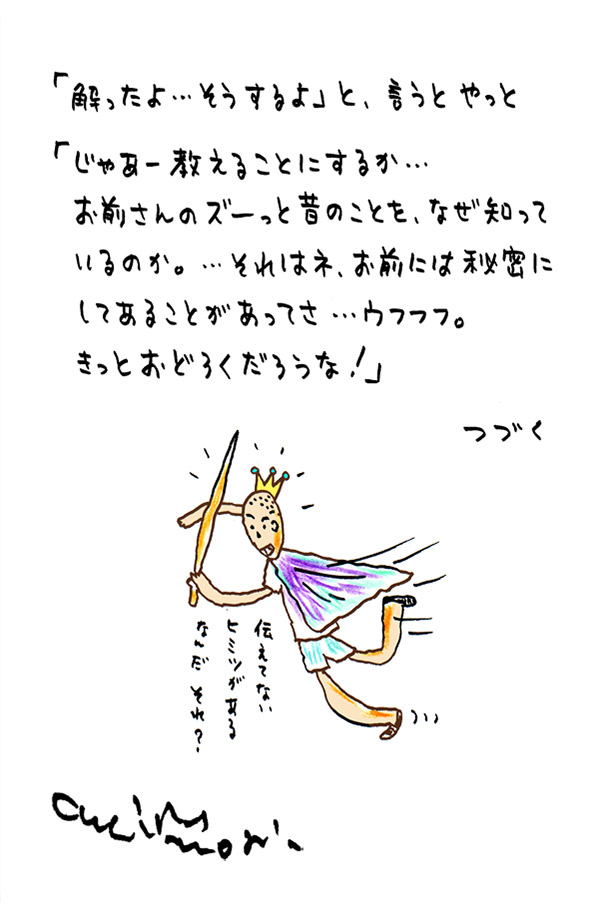 「解ったよ…そうするよ」と、言うと やっと
「じゃあー教えることにするか…
お前さんのズーっと昔のことを、なぜ知って
いるのか。…それはネ、お前には秘密に
してあることがあってさ…ウフフフ。
きっとおどろくだろうな!」
つづく
伝えてない
ヒミツがある
なんだ それ?